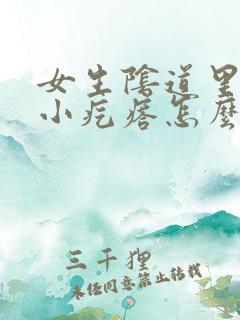 女生陰道里
小疙瘩怎麼
三千狸
未经同意禁止转载